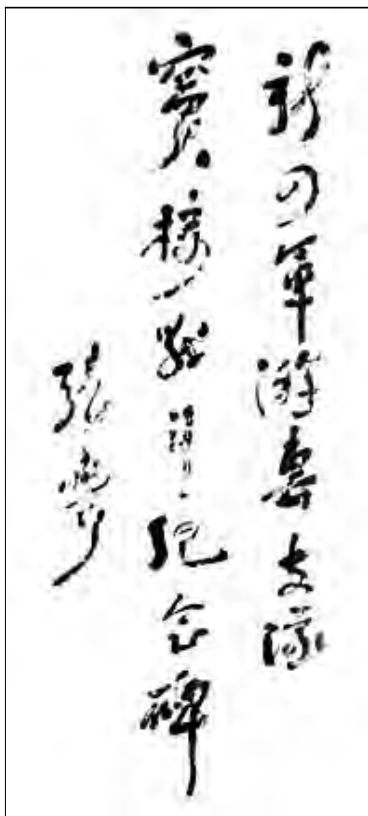 新四軍游擊支隊
竇樓一战紀念碑
張